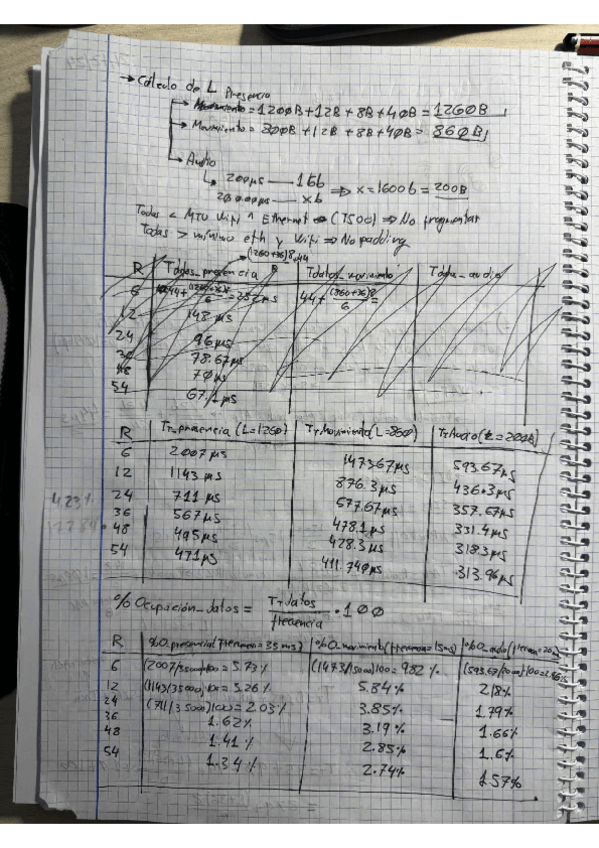 → Cálculo de L
Presencia
→ Movimiento = 1200B + 12B + 8B + 40B = 1260B
→ Movimiento = 800B + 12B + 8B + 40B = 860B
→ Audio
200µs — 16b
20000µs — xb ⇒ x = 1600b = 200B
Todas < MTU Wifi ^ Ethernet (1500) ⇒ No fragmentar
Todas > mínimo eth y Wifi ⇒ No padding
(1260+36)8
R Tdatos_presencia Tdatos_movimiento Tdata_audio
6 44+ (1260+36)8/6 = 44+ (360+36)8/6 =
12 148 µs
24 96µs
36 78.67µs
48 70µs
54 67.1µs
R Tx_presencia (L=1260) Tx Movimiento (L=860) Tx Audio (L=200B)
6 2007µs 1473.67µs 593.67µs
12 1143µs 876.3µs 436.3µs
24 711µs 577.67µs 357.67µs
36 567µs 478.1µs 331.4µs
48 495µs 428.3µs 318.3µs
54 471µs 411.740µs 313.96µs
% Ocupación_datos = Tx datos / frecuencia · 100
R %O.presencia (frecuencia=35ms) %O_movimiento (frecuencia=15ms) %O_audio
6 (2007/35000)100 = 5.73% (1473/15000)100 = 9.82% (593.67/20000)100 =
12 (1143/35000)100 = 3.26% 5.84% 2.18%
24 (711/35000)100 = 2.03% 3.85% 1.79%
36 1.62% 3.19% 1.66%
48 1.41% 2.85% 1.6%
54 1.34% 2.74% 1.57%